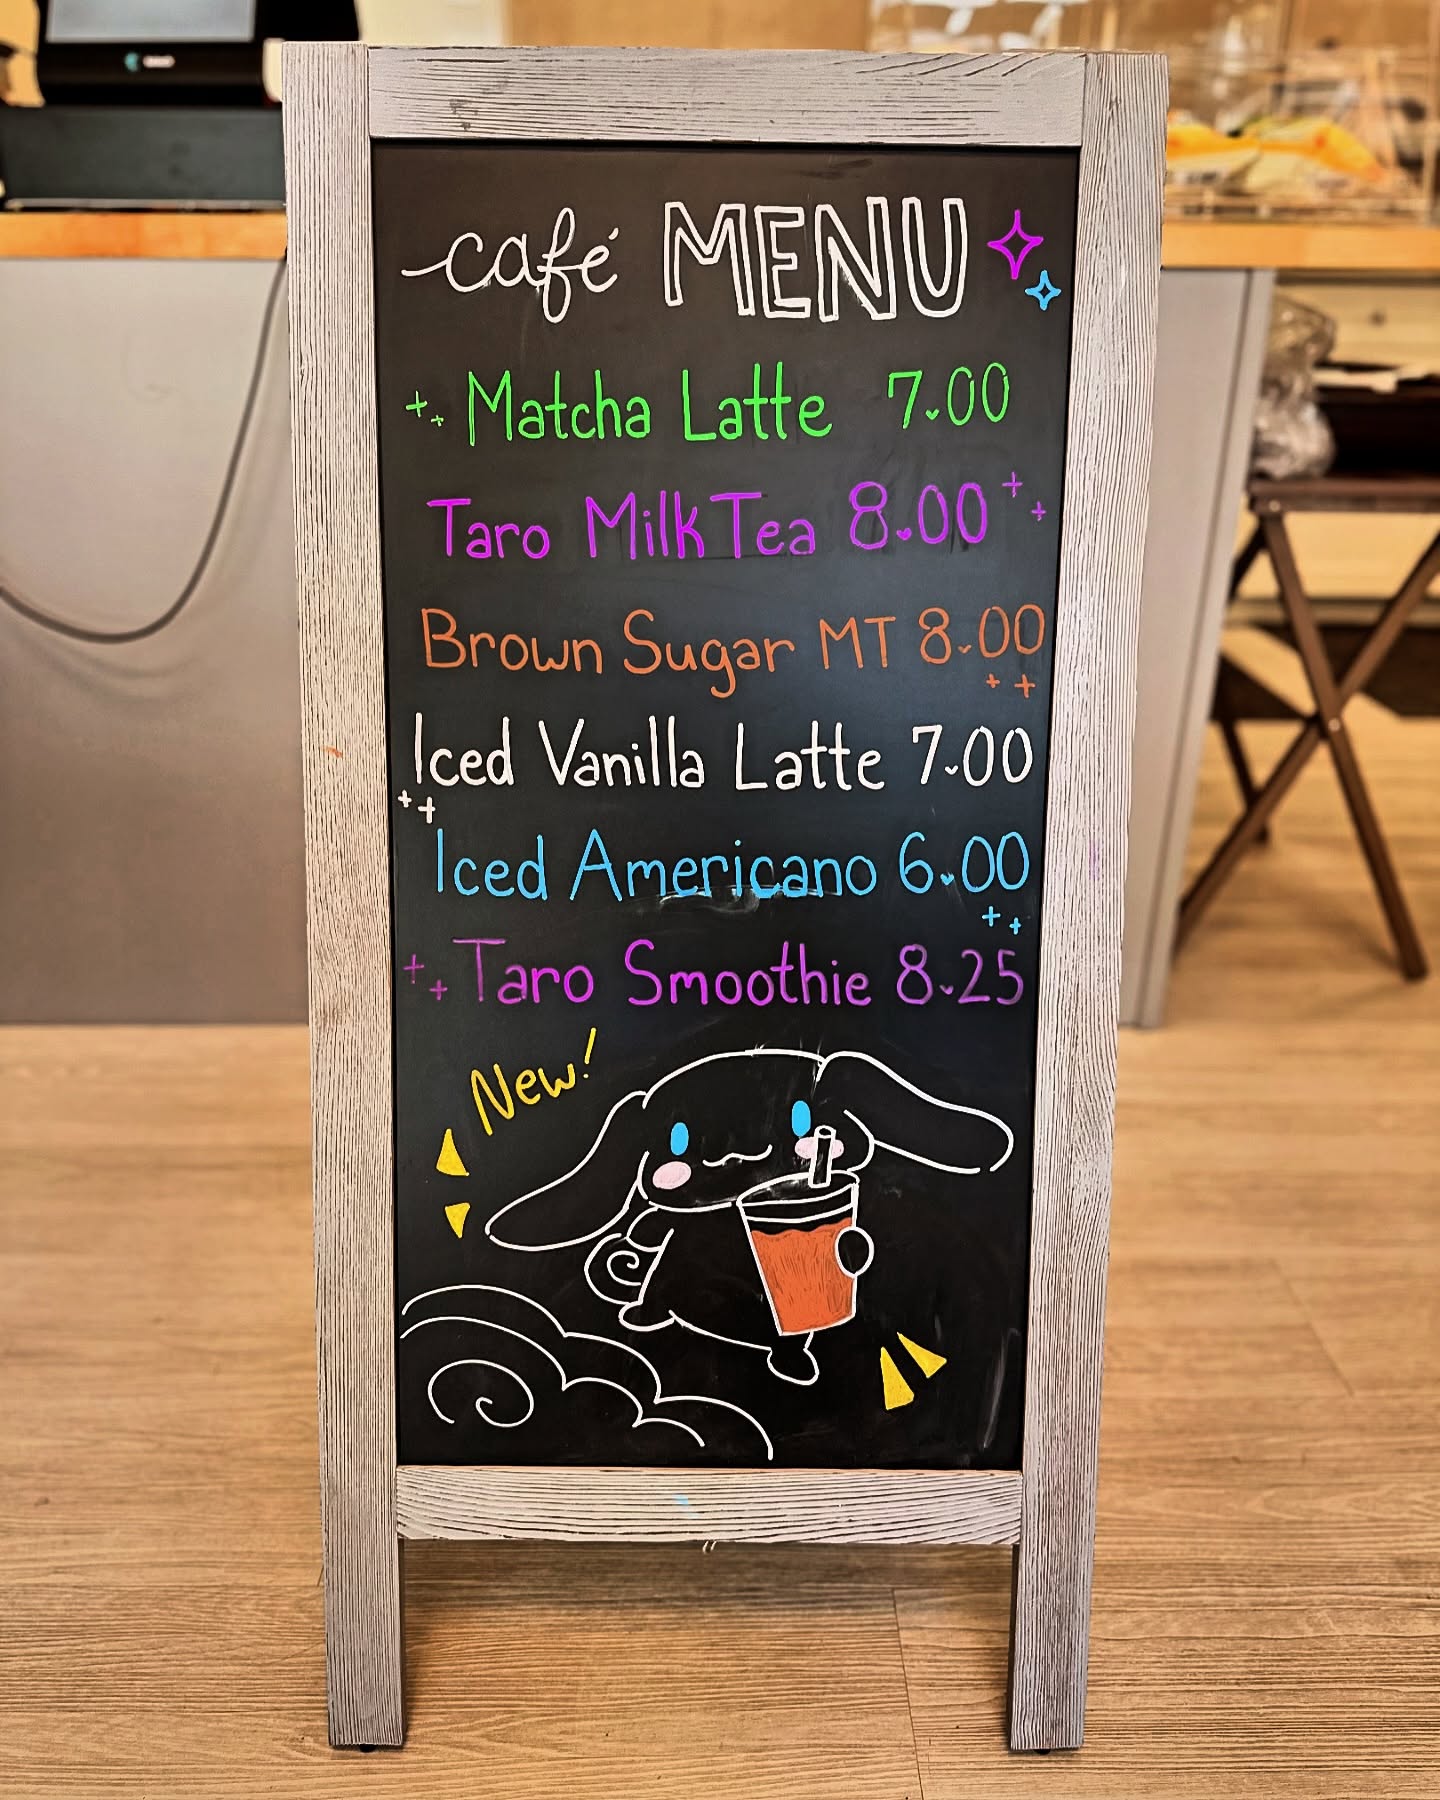 café MENU
Matcha Latte 7.00
Taro Milk Tea 8.00
Brown Sugar MT 8.00
Iced Vanilla Latte 7.00
Iced Americano 6.00
Taro Smoothie 8.25
New!